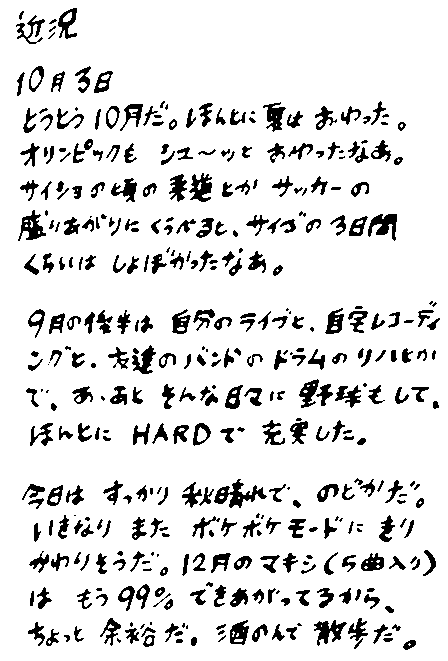 近況
10月3日
とうとう10月だ。ほんとに夏は おわった。
オリンピックも シュ〜ッと おわったなあ。
サイショの頃の柔道とか サッカーの
盛りあがりにくらべると、サイゴの3日間
くらいは しょぼかったなあ。
9月の後半は 自分のライブと、自宅レコーディ
ングと、友達のバンドのドラムのリハとか
で、あ、あと そんな日々に 野球もして、
ほんとに HARDで 充実した。
今日は すっかり 秋晴れで、のどかだ。
いきなり また ボケボケモードに きり
かわりそうだ。12月のマキシ(5曲入り)
は もう99% できあがってるから、
ちょっと 余裕だ。酒のんで 散歩だ。